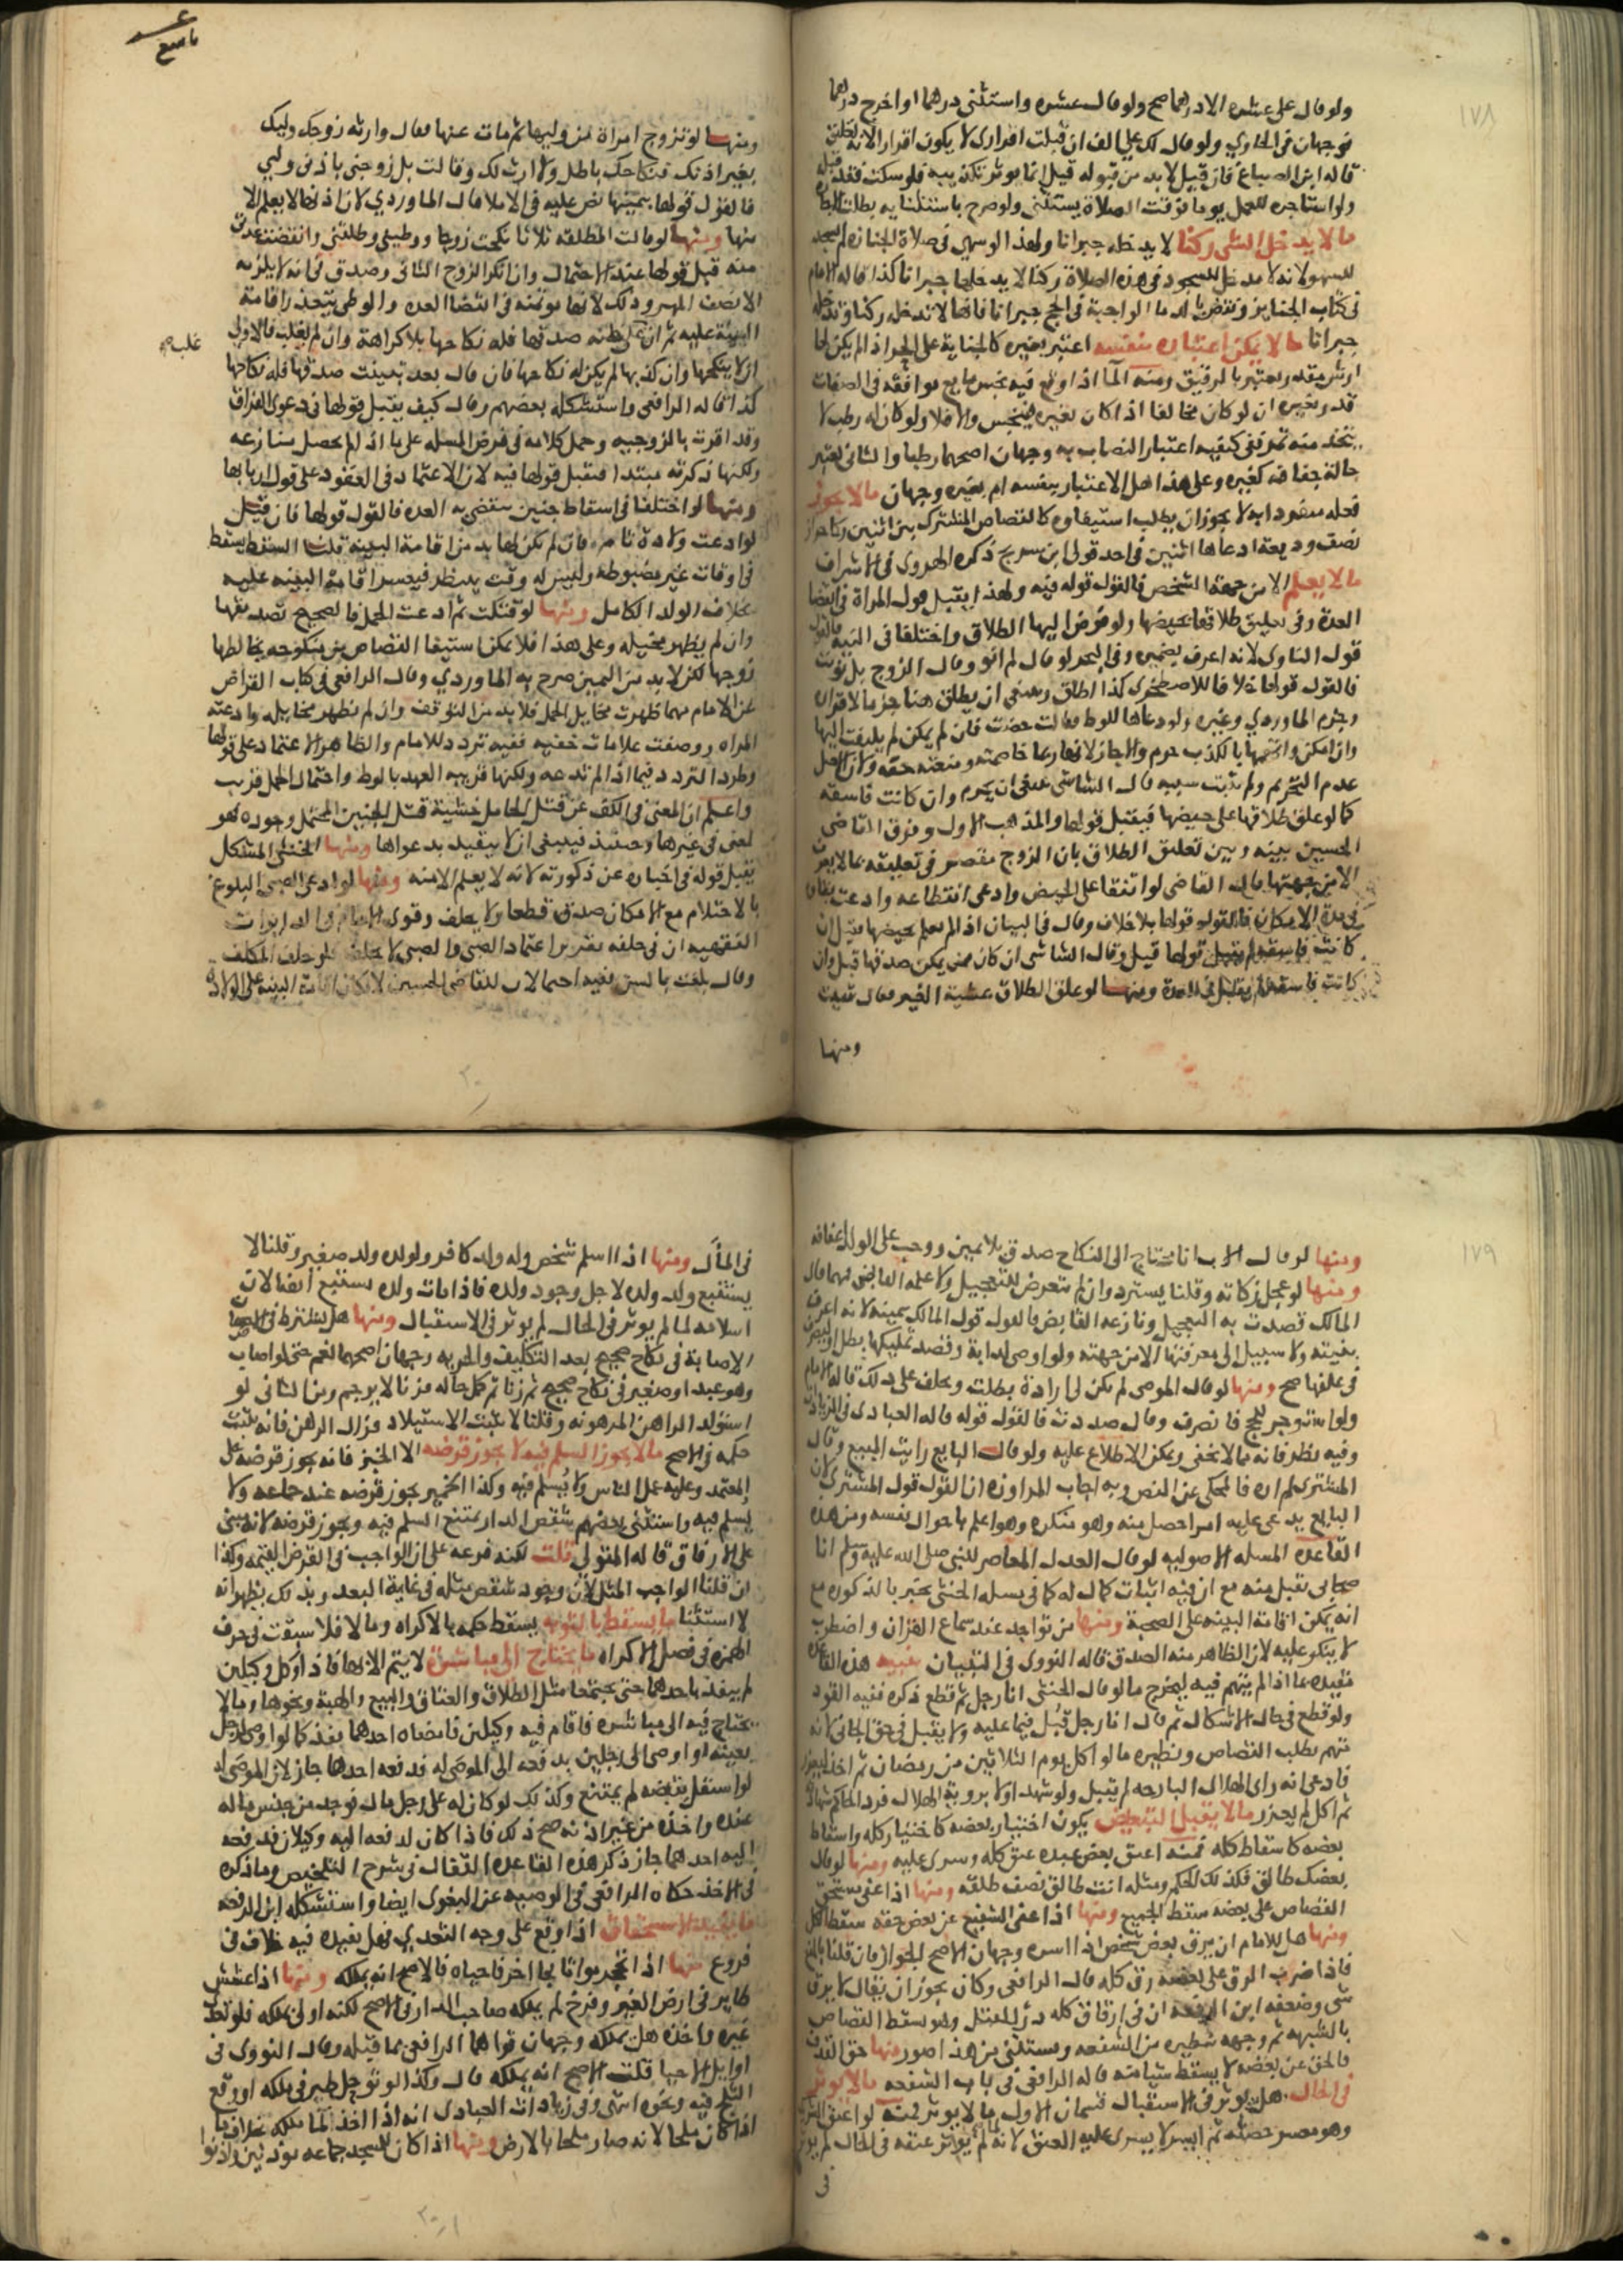 ١٧٨
ولو قال على عشره الا درهما صح ولو قال عشره واستثنى درهما او اخرج درهما
فوجهان فى الحاوي ولو قال لك علي الف ان قبلت اقرارى لا يكون اقرارا لانه تعليق
قاله ابن الصباغ فان قيل لا بد من قبوله قيل انما يوثر تكذيبه فلو سكت
ولو استاجره للعمل يوما فوقت الصلاة يستثنى ولو صرح باستثنايه بطلت
ما لا يدخل الشى ركنا لا يدخله جبرانا ولهذا لو سهى فى صلاة الجنازه لم يسجد
للسهو لانه لا مدخل للسجود فى هذه الصلاة ركنا لا يدخلها جبرانا كذا قاله الامام
فى كتاب الجنايز ونقض بالدما الواجبة فى الحج جبرانا فانها لا تدخله ركنا وتدخله
جبرانا ما لا يمكن اعتباره بنفسه اعتبر بغيره كالجناية على الحر اذا لم يكن لها
ارش مقدر يعتبر بالرقيق ومنه الما اذا وقع فيه نجس مايع موافقه فى الصفات
قدر بغيره ان لو كان مخالفا اذا كان تغيره فينجس والا فلا ولو كان له رطب لا
يتخذ منه تمر ففى كيفيه اعتبار النصاب به وجهان اصحهما رطبا والثانى يعتبر
حالة جفافه كغيره وعلى هذا هل الاعتبار بنفسه ام بغيره وجهان ما لا يجوز
فعله منفردا به لا يجوز ان يطلب استيفاوه كالقصاص المشترك بين اثنين
نصف وديعة ادعاها اثنين فى احد قولى ابن سريج ذكره الهروى فى الاشراف
ما لا يعلم الا من جهة الشخص فالقول قوله فيه ولهذا يقبل قول المراة فى انقضا
العدة وفى تعليق طلاقها بحيضها ولو فوض اليها الطلاق واختلفا فى النيه فالقول
قول الناوى لانه اعرف بضميره وفى البحر لو قال لم انو وقال الزوج بل نويت
فالقول قولها خلافا للاصطخرى كذا اطلق وينبغى ان يطلق هنا جزما لاقراره
وجزم الماوردي وغيره ولو دعاها للوط فقالت حضت فان لم يمكن لم يلتفت اليها
وان امكن واتهمها بالكذب حرم والا جاز لانها ربما خاصمته ومنعته حقه ولان الاصل
عدم التحريم ولم يثبت سببه قال الشاشى ينبغى ان يحرم وان كانت فاسقة
كما لو علق طلاقها على حيضها فيقبل قولها والمذهب الاول وفرق القاضى
الحسين بينه وبين تعليق الطلاق بان الزوج مقصر فى تعليقه بما لا يعرف
الا من جهتها قال القاضى لو اتفقا على الحيض وادعى انقطاعه وادعت بقاه
فى مدة الامكان فالقول قولها بلا خلاف وقال فى البيان اذا لم يعلم بحيضها فقيل ان
كانت فاسقة لم يقبل قولها قيل وقال الشاشى ان كان ممن يمكن صدقها قبل وان
كانت فاسقة لم يقبل فى العدة ومنها لو علق الطلاق عشية الغير فقال
ومنها
ومنها لو تزوج امراة من وليها ثم مات عنها فقال وارثه زوجك وليك
بغير اذنك فنكاحك باطل ولا ارث لك وقالت بل زوجنى باذنى ولي
فالقول قولها بيمينها نص عليه فى الاملا قال الماوردي لان اذنها لا يعلم الا
منها ومنها لو قالت المطلقه ثلاثا نكحت زوجا ووطينى وطلقنى وانقضت عدتى
منه قبل قولها عند الاحتمال وان انكر الزوج الثانى وصدق فى انه لا يلزمه
الا نصف المهر وذلك لانها موتمنه فى انقضا العده والوطى يتعذر اقامة
البينة عليه ثم ان على ظنه صدقها فله نكاحها بلا كراهة وان لم يغلب فالاولى
غلب صح
ان لا ينكحها وان كذبها لم يكن له نكاحها فان قال بعد تبينت صدقها فله نكاحها
كذا قاله الرافعى واستشكله بعضهم وقال كيف يقبل قولها فى دعوى الفراق
وقد اقرت بالزوجيه وحمل كلامه فى فرض المسله على ما اذا لم يحصل منازعه
ولكنها ذكرته مبتدا فتقبل قولها فيه لان الاعتماد فى العقود على قول اربابها
ومنها لو اختلفا فى اسقاط جنين تنقضى به العده فالقول قولها فان قيل
لو ادعت ولادة تامه فان لم يكن لها بد من اقامة البينه قلنا السقط يسقط
فى اوقات غير مضبوطه وليس له وقت ينتظر فيعسر اقامة البينه عليه
بخلاف الولد الكامل ومنها لو قتلت ثم ادعت الحمل فالصحيح تصديقها
وان لم يظهر مخيله وعلى هذا فلا يمكن استيفا القصاص من منكوحه يخالطها
زوجها لكن لا بد من اليمين صرح به الماوردي وقال الرافعى فى كتاب القراض
عن الامام مهما ظهرت مخايل الحمل فلا بد من التوقف وان لم تظهر مخايله وادعته
المراه ووصفت علامات خفيه ففيه تردد للامام والظاهر الاعتماد على قولها
وطرد التردد فيما اذا لم تدعه ولكنها قريبه العهد بالوط واحتمال الحمل قريب
واعلم ان المعنى فى الكف عن قتل الحامل خشية قتل الجنين المحتمل وجوده وهو
لمعنى فى غيرها وحينئذ فينبغى ان لا يتقيد بدعواها ومنها الخنثى المشكل
يقبل قوله فى اخباره عن ذكورته لانه لا يعلم الا منه ومنها لو ادعى الصبى البلوغ
بالاحتلام مع الامكان صدق قطعا ولا يحلف وقوى الامام
التفقهيه ان فى حلفه تقرير اعتماد الصبى والصبى لا يحلف فلو حلف المكلف
وقال بلغت بالسن ففيه احتمالان للقاضى الحسين لامكان اقامة البينه على الولادة
١٧٩
ومنها لو قال الاب انا محتاج الى النكاح صدق بلا يمين ووجب على الولد اعفافه
ومنها لو عجل زكاته وقلنا يسترد وان لم يتعرض للتعجيل ولا علمه القابض فمهما قال
المالك قصدت به التعجيل ونازعه القابض فالقول قول المالك بيمينه لانه اعرف
بنيته ولا سبيل الى معرفتها الا من جهته ولو اوصى لدابة وقصد تمليكها بطل او ليصرف
فى علفها صح ومنها لو قال الموصى لم تكن لى ارادة بطلت ويحلف على ذلك قاله الامام
ولو استوجر للحج فانصرف وقال صددت فالقول قوله قاله العبادى فى الزيادات
وفيه نظر فانه مما لا يخفى ويمكن الاطلاع عليه ولو قال البايع رايت المبيع وقال
المشترى لم اره فالمحكى عن النص وبه اجاب المراوزه ان القول قول المشترى لان
البايع يدعى عليه امرا حصل منه وهو منكره وهو اعلم باحوال نفسه ومن هذه
القاعده المسله الاصوليه لو قال العدل المعاصر للنبى صلى الله عليه وسلم انا
صحابى يقبل منه مع ان فيه اثبات كمال له كما فى مسله الخنثى يخبر بالذكوره مع
انه يمكن اقامة البينه على الصحبة ومنها من تواجد عند سماع القران واضطرب
لا ينكر عليه لان الظاهر منه الصدق قاله النووى فى التبيان تنبيه هذه القاعده
مقيده بما اذا لم يتهم فيه ليخرج ما لو قال الخنثى انا رجل ثم قطع ذكره ففيه القود
ولو قطع فى حال الاشكال ثم قال انا رجل قبل فيما عليه ولا يقبل فى حق الجانى لانه
متهم بطلب القصاص ونظيره ما لو اكل يوم الثلاثين من رمضان ثم اخذ ليعزر
فادعى انه راى الهلال البارحه لم يقبل ولو شهد اولا بروية الهلال فرد الحاكم شهادته
ثم اكل لم يعزر ما لا يقبل التبعيض يكون اختيار بعضه كاختيار كله واسقاط
بعضه كاسقاط كله فمنه اعتق بعض عبده عتق كله وسرى عليه ومنها لو قال
بعضك طالق فكذلك الحكم ومثله انت طالق نصف طلقه ومنها اذا عفى مستحق
القصاص على بعضه سقط الجميع ومنها اذا عفى الشفيع عن بعض حقه سقط الكل
ومنها هل للامام ان يرق بعض شخص اذا اسره وجهان الاصح الجواز فان قلنا بالمنع
فاذا ضرب الرق على بعضه رق كله قال الرافعى وكان يجوز ان يقال لا يرق
شى وضعفه ابن الرفعه ان فى ارقاق كله درا للقتل وهو يسقط القصاص
بالشبهه ثم وجهه بنظيره من الشفعه ويستثنى من هذا صور منها حق القذف
فالحق عن بعضه لا يسقط شيا منه قاله الرافعى فى باب الشفعه ما لا يوثر
فى الحال هل يوثر فى الاستقبال قسمان الاول ما لا يوثر فمنه لو اعتق الشريك
وهو معسر حصته ثم ايسر لا يسرى عليه العتق لانه لما لم يوثر عتقه فى الحال لم يوثر
فى
فى المال ومنها اذا اسلم شخص وله ولد كافر ولولده ولد صغير وقلنا لا
يستتبع ولد ولده لاجل وجود ولده فاذا مات ولده لم يستتبع ايضا لان
اسلامه لما لم يوثر فى الحال لم يوثر فى الاستقبال ومنها هل يشترط فى
الاصابة فى نكاح صحيح بعد التكليف والحريه وجهان اصحهما نعم حتى لو اصاب
وهو عبد او صغير فى نكاح صحيح ثم زنا ثم كمل حاله فزنا لا يرجم ومن الثانى لو
استولد الراهن المرهونه وقلنا لا يثبت الاستيلاد فزال الرهن فانه يثبت
حكمه فى الاصح ما لا يجوز السلم فيه لا يجوز قرضه الا الخبز فانه يجوز قرضه على
المعتمد وعليه عمل الناس ولا يسلم فيه وكذا الخمير يجوز قرضه عند جماعه ولا
يسلم فيه واستثنى بعضهم شقص الدار يمتنع السلم فيه ويجوز قرضه لانه مبنى
على الارفاق قاله المتولي قلت لكنه فرعه على ان الواجب فى القرض القيمة وكذا
ان قلنا الواجب المثل لان وجود شقص مثله فى غاية البعد وبذلك يظهر انه
لا استثنا ما يسقط بالتوبه يسقط حكمه بالاكراه وما لا فلا سبقت فى حرف
الهمزه فى فصل الاكراه ما يحتاج الى مباشرة لا يتم الا بها فاذا وكل وكيلين
لم ينفذ باحدهما حتى يجتمعا مثل الطلاق والعتاق والبيع والهبة ونحوها وما لا
يحتاج فيه الى مباشره فاقام فيه وكيلين فامضاه احدهما نفذ كما لو اوصى لرجل
بعينه او اوصى الى رجلين بدفعه الى الموصى له فدفعه احدهما جاز لان الموصى له
لو استقل بقبضه لم يمتنع وكذلك لو كان له على رجل مال فوجد من جنس ماله
عنده واخذه من غير اذنه صح ذلك فاذا كان له دفعه اليه وكيلان فدفعه
اليه احدهما جاز ذكر هذه القاعده القفال فى شرح التلخيص وما ذكره
فى الاخذ حكاه الرافعى فى الوصيه عن البغوى ايضا واستشكله ابن الرفعه
ما سبيله الاستحقاق اذا وقع على وجه التعدي فهل يفيده فيه خلاف فى
فروع منها اذا تحجر مواتا فجا اخر فاحياه فالاصح انه يملكه ومنها اذا عشش
طاير فى ارض الغير وفرخ لم يملكه صاحب الدار فى الاصح لكنه اولى بملكه فلو تعدى
غيره واخذه هل يملكه وجهان قواهما الرافعى بما قبله وقال النووى فى
اوايل الاحيا قلت الاصح انه يملكه قال وكذا لو توحل طير فى ملكه او وقع
الثلج فيه ونحوه انتهى وفى زيادات العبادى انه اذا اخذ الما ملكه بخلاف ما
اذا كان ملحا لانه صار ملحا بالارض ومنها اذا كان للمسجد جماعه موذنين واذنوا